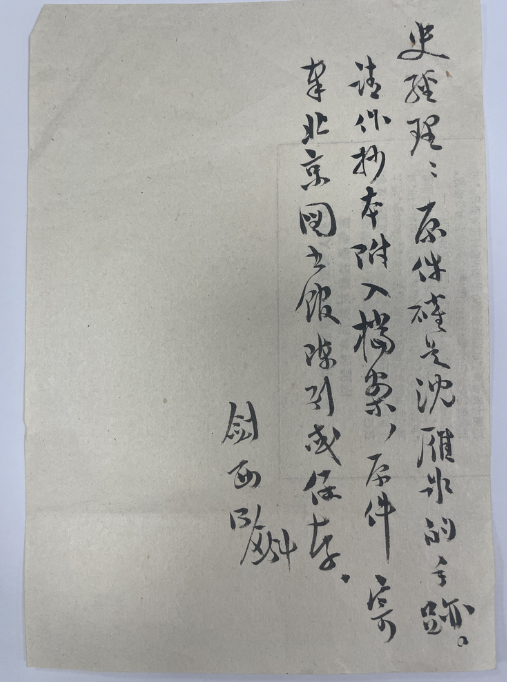 史经理：原件确是沈雁冰的手跡。
请作抄本附入档案，原件寄
北京図书馆陈列或保存。
剑西